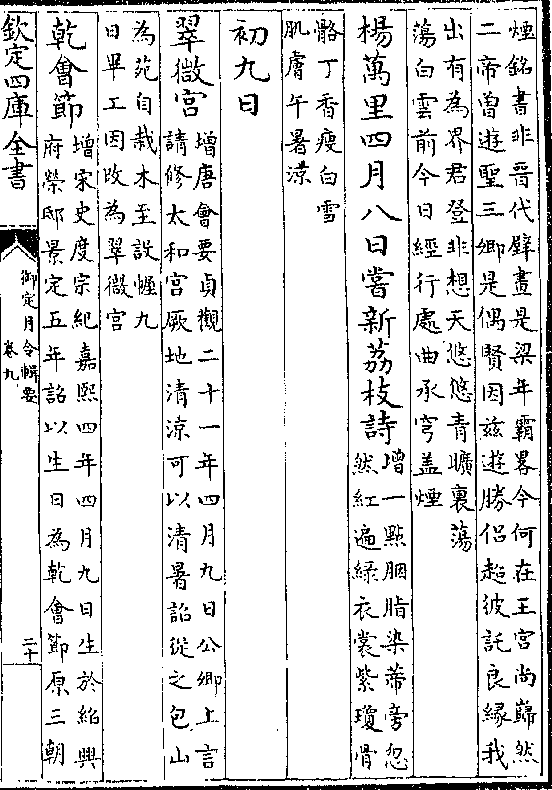 煙銘書非晉代壁畫是梁年霸畧今何在王宫尚蘬然
二帝曽遊聖三卿是偶賢因兹遊勝侣超彼託良緣我
出有為界君登非想天悠悠青曠裏蕩
蕩白雲前今日經行處曲承穹盖煙
楊萬里四月八日嘗新荔枝詩
增一點胭脂染蒂旁忽
然紅遍緑衣裳紫瓊骨
骼丁香瘦白雪
肌膚午暑涼
初九日
翠微宫
增唐會要貞觀二十一年四月九日公卿上言
請修太和宫厥地清涼可以清暑詔從之包山
為苑自栽木至設幄九
日畢工因改為翠微宫
乾會節
增宋史度宗紀嘉熙四年四月九日生於紹興
府榮邸景定五年詔以生日為乾會節原三朝
欽定四庫全書
御定月令輯要
卷九
二十